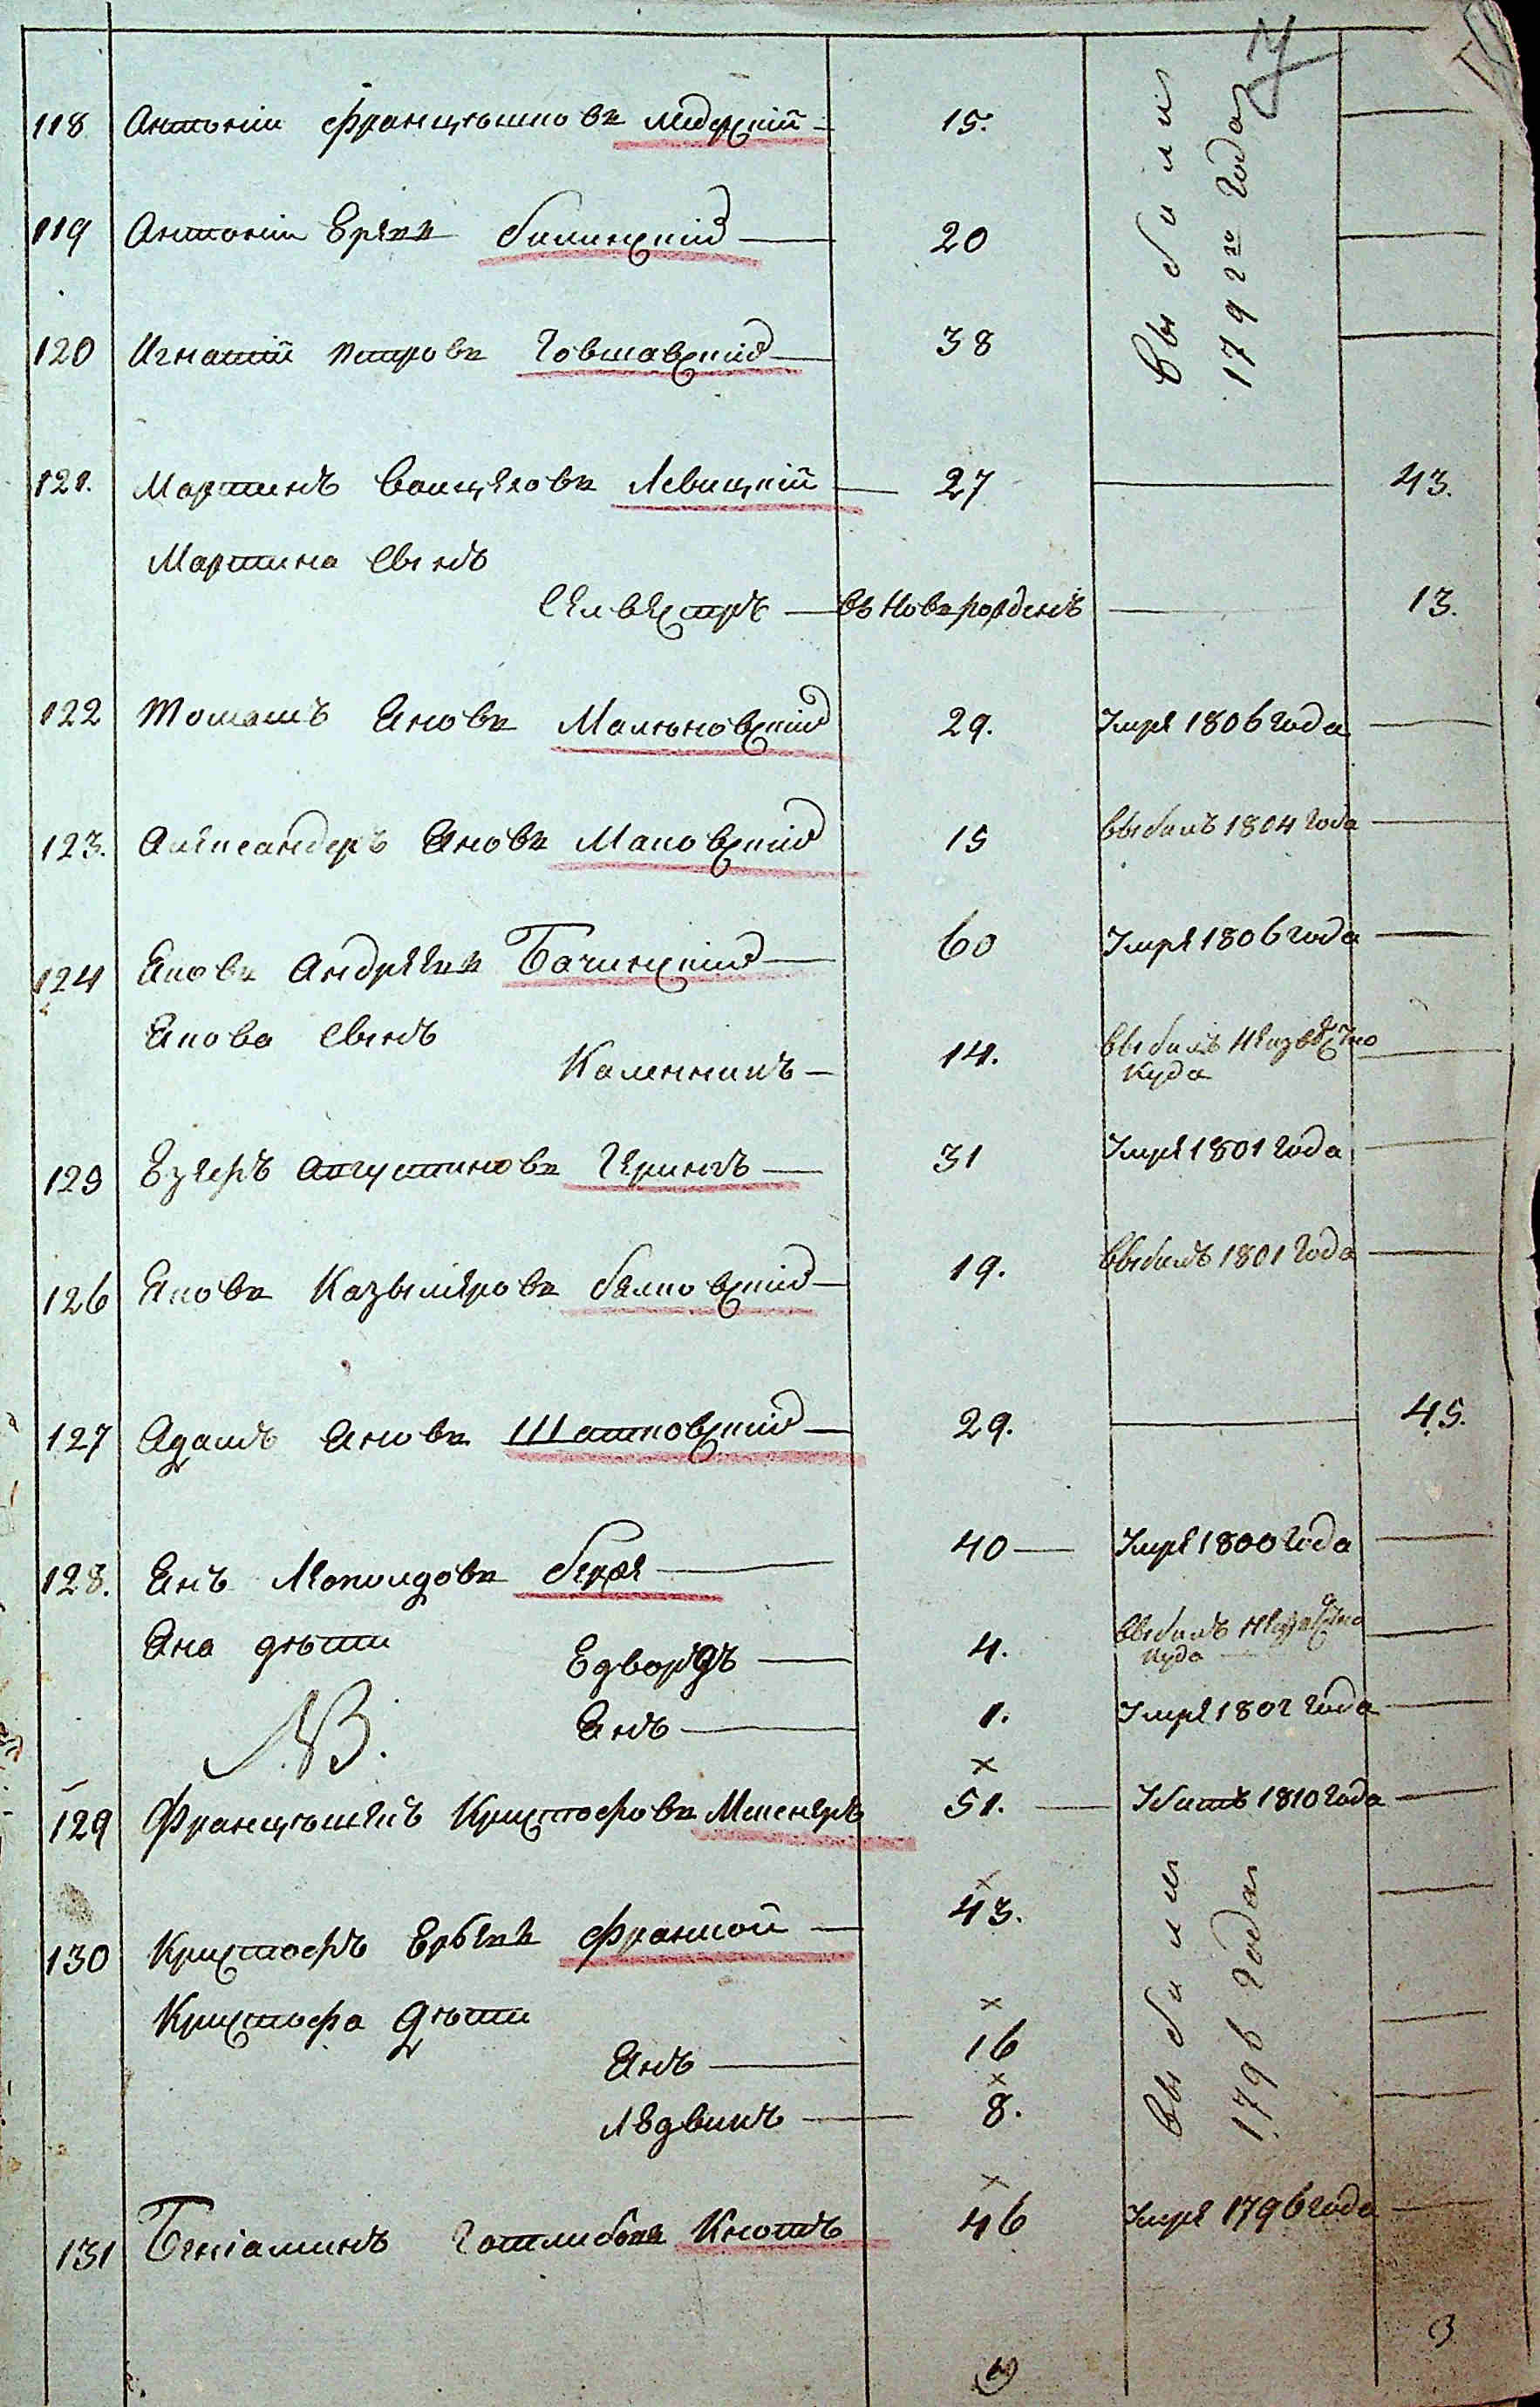 118 Антоніи Францышковъ Мадерскій 15.
выбыли 1792го года
119 Антоніи Ериевъ Билинскій 20
120 Игнатій Петровъ Товтавскій 38
121. Мартинъ Войцеховъ Левицкій 27 43.
Мартина Сынъ
Селвестръ вь Новорожденъ 13.
122 Томашъ Яновъ Малиновскій 29. Умре 1806 года
123. Александеръ Яновъ Маковскій 15 выбылъ 1804 года
124 Яковъ Андреевъ Бачинскій 60 Умре 1806 года
Якова Сынъ
Каленикъ 14. выбылъ Неизвестно
Куда
125 Езефъ Августиновъ Герингъ 31 Умре 1801 года
126 Яковъ Казымеровъ Белковскій 19. выбылъ 1801 года
127 Адамъ Яновъ Шатковскій 29. 45.
128. Янъ Леополдовъ 40 Умре 1800 года
Яна дѣти
Едвардъ 4. выбылъ Неизвестно
куда
NB. Янъ 1. Умре 1802 года
129 Францышекъ Кристофовъ 51. Убитъ 1810 года
130 Кристофъ 43.
выбыли 1796 года
Кристофа Дѣти
Янъ 16
Лѣдвикъ 8.
131 Бениаминъ Готлибовъ Кнотъ 46 Умре 1796 года